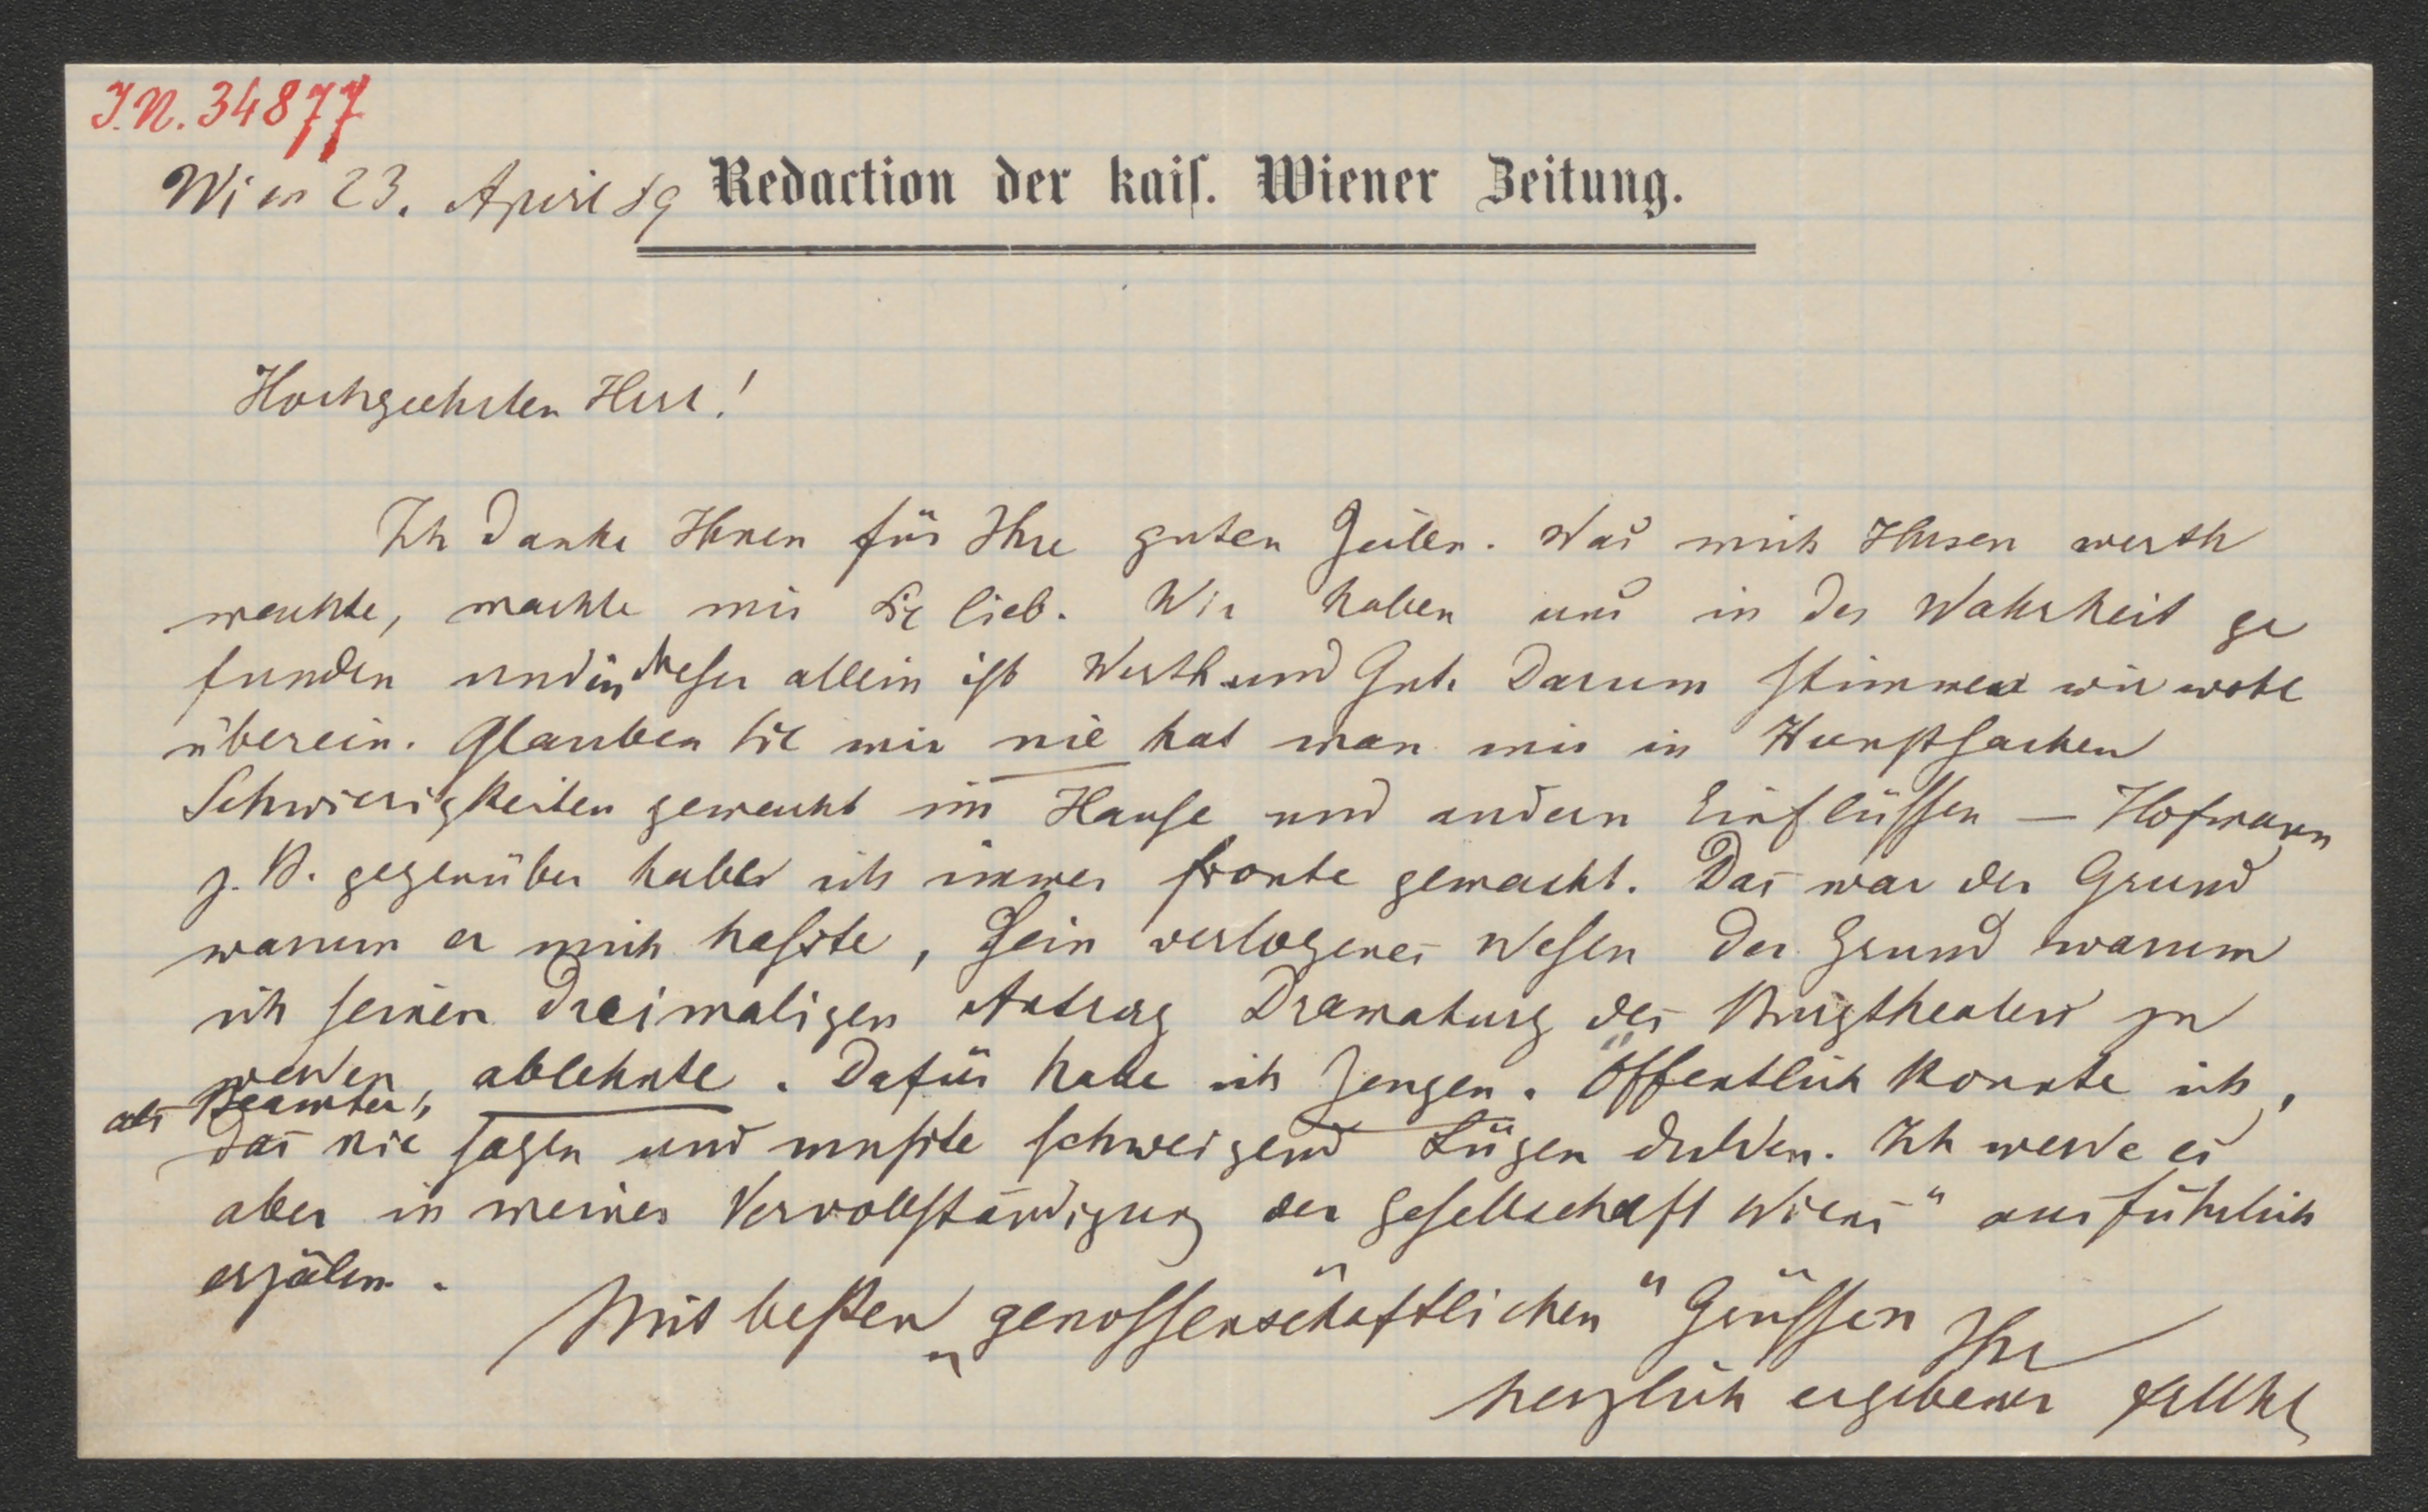 I.N. 34877
Wien 23. April 89 Redaction der kais. Wiener Zeitung.
Hochgeehrter Herr!
Ich danke Ihnen für Ihre guten Zeilen. Was mich Ihnen werth
machte, machte mir Sie lieb. Wir haben uns in der Wahrheit ge
funden und in dieser allein ist Werth und Gut. Darum stimmen wir wohl
überein. Glauben Sie mir nie hat man mir in Kunstsachen
Schwierigkeiten gemacht im Hause und andern Einflüssen — Hofmann
z. B. gegenüber habe ich immer fronte gemacht. Das war der Grund
warum er mich hasste, Sein verlogenes Wesen der Grund warum
ich seinen dreimaligen Antrag Dramaturg des Burgtheaters zu
werden, ablehnte. Dafür habe ich Zeugen. Öffentlich konnte ich,
als Beamter,
das nie sagen und musste schweigend Lügen dulden. Ich werde es
aber in meiner Vervollständigung der Gesellschaft Wiens" ausführlich
erzälen.
Mit besten „genossenschäftlichen" Grüssen
Ihr
herzlich ergebener